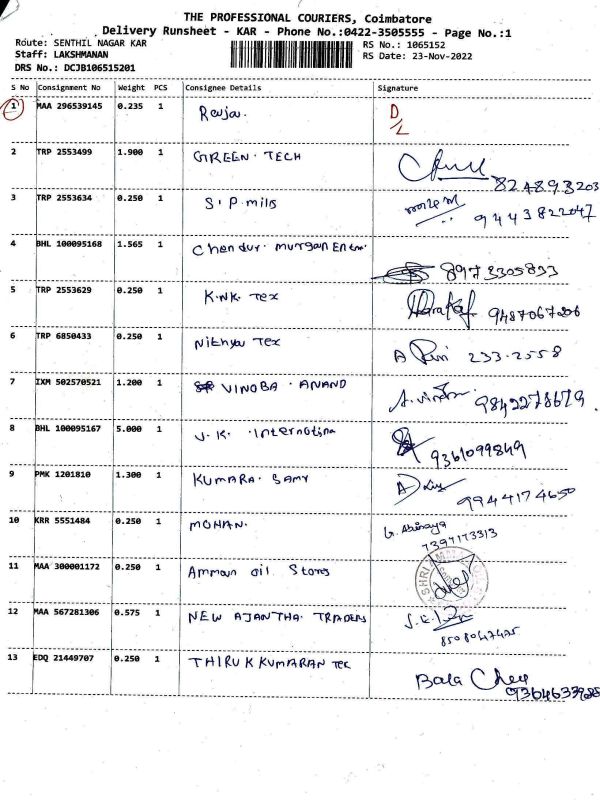 THE PROFESSIONAL COURIERS, Coimbatore
Delivery Runsheet - KAR - Phone No.:0422-3505555 - Page No.:1
Route: SENTHIL NAGAR KAR
RS No.: 1065152
Staff: LAKSHMANAN
RS Date: 23-Nov-2022
DRS No.: DCJB106515201
S No Consignment No Weight PCS Consignee Details Signature
1 MAA 296539145 0.235 1 Raja D/L
2 TRP 2553499 1.900 1 GREEN TECH
824893203
3 TRP 2553634 0.250 1 S.P. mills
9443822047
4 BHL 100095168 1.565 1 Chendur murugan Ent
8973305833
5 TRP 2553629 0.250 1 K.N.K. Tex
9487067206
6 TRP 6850433 0.250 1 Nithya Tex
233-2558
7 IXM 502570521 1.200 1 VINOBA ANAND
9842278679
8 BHL 100095167 5.000 1 J. K. Internationa
9361099849
9 PMK 1201810 1.300 1 KUMARA SAMY
9944174650
10 KRR 5551484 0.250 1 MOHAN. G. Abinaya
7397173313
11 MAA 300001172 0.250 1 Amman oil Stores
12 MAA 567281306 0.575 1 NEW AJANTHA TRADERS
8508047475
13 EDQ 21449707 0.250 1 THIRUKKUMARAN Tex
Bala
9364633988